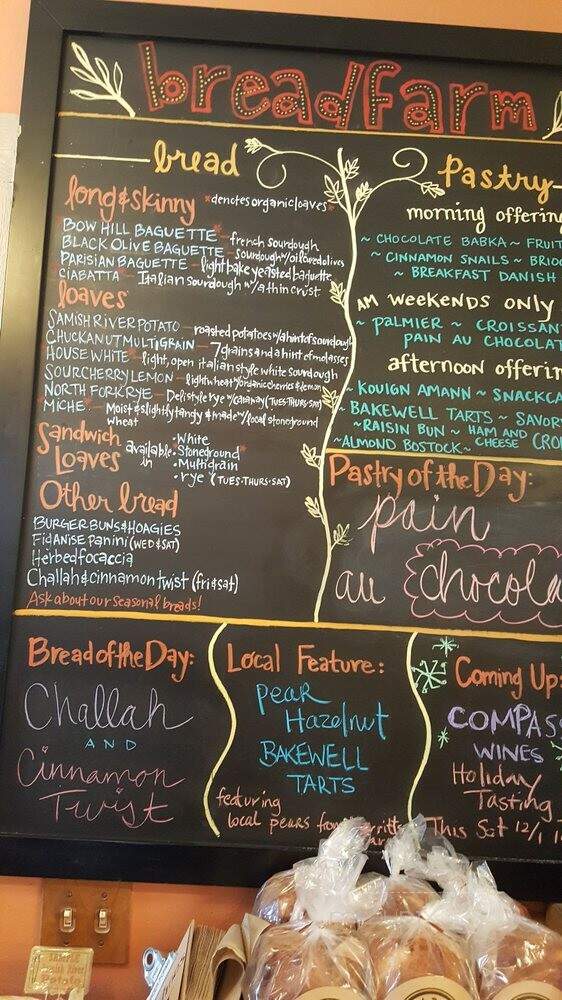 breadfarm
bread
long & skinny *denotes organic loaves*
BOW HILL BAGUETTE* - french sourdough
BLACK OLIVE BAGUETTE - sourdough w/ oil cured olives
PARISIAN BAGUETTE - light bake yeasted baguette
CIABATTA* - Italian sourdough w/ a thin crust
loaves
SAMISH RIVER POTATO - roasted potatoes w/ a hint of sourdough
CHUCKANUT MULTIGRAIN - 7 grains and a hint of molasses
HOUSE WHITE* - light, open italian style white sourdough
SOUR CHERRY LEMON - light wheat w/ organic cherries & lemon
NORTH FORK RYE - Deli style rye w/ caraway (TUES·THURS·SAT)
MICHE* - Moist & slightly tangy & made w/ local stoneground
wheat
Sandwich Loaves available in
·White
·Stoneground*
·Multigrain
·rye (TUES·THURS·SAT)
Other bread
BURGER BUNS & HOAGIES
Fig Anise panini (WED & SAT)
Herbed focaccia
Challah & cinnamon twist (fri & sat)
Ask about our seasonal breads!
Pastry
morning offerin
~ CHOCOLATE BABKA ~ FRUIT
~ CINNAMON SNAILS ~ BRIO
~ BREAKFAST DANISH
AM WEEKENDS ONLY
~ PALMIER ~ CROISSAN
PAIN AU CHOCOLAT
afternoon offerin
~ KOUIGN AMANN ~ SNACKCA
~ BAKEWELL TARTS ~ SAVOR
~ RAISIN BUN ~ HAM AND CHEESE CRO
~ ALMOND BOSTOCK ~
Pastry of the Day:
pain
au chocola
Bread of the Day:
Challah
AND
Cinnamon
Twist
Local Feature:
Pear
Hazelnut
BAKEWELL
TARTS
featuring
local pears from
Coming Up:
COMPASS
WINES
Holiday
Tasting
This Sat 12/1
SAMPLE
Samish River
Potato